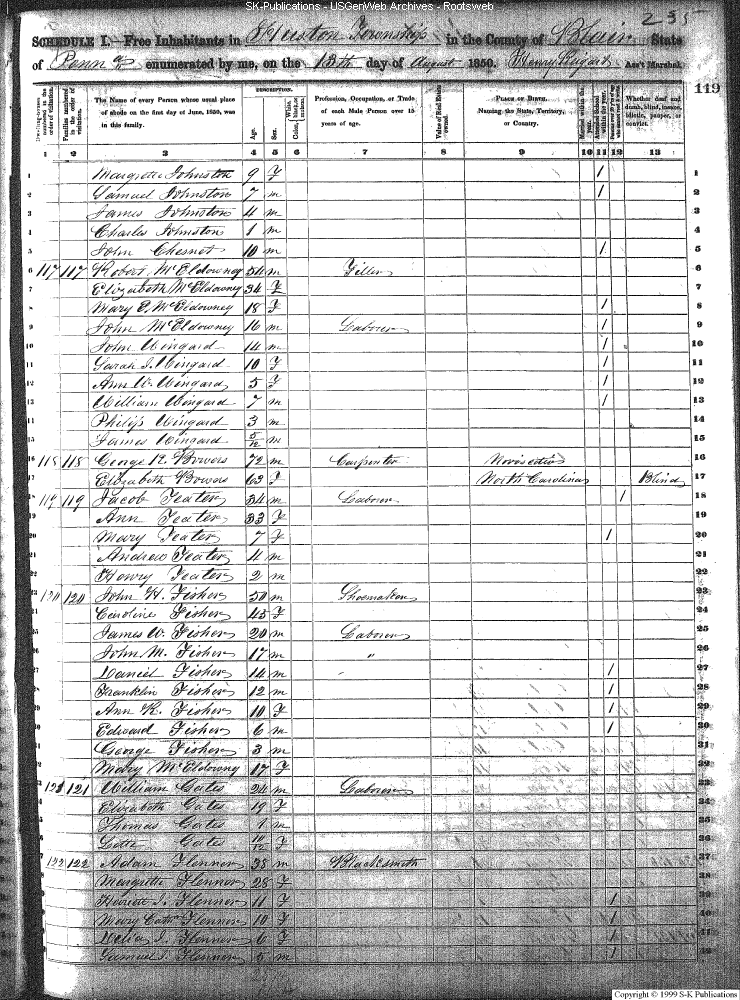 SK-Publications - USGenWeb Archives - Rootsweb
255
SCHEDULE I.—Free Inhabitants in Huston Township in the County of Blair State
of Penna enumerated by me, on the 13th day of August 1850. Ass't Marshal.
119
Dwelling-houses numbered in the order of visitation.
Families numbered in the order of visitation.
The Name of every Person whose usual place of abode on the first day of June, 1850, was in this family.
DESCRIPTION.
Age.
Sex.
Color, White, black, or mulatto.
Profession, Occupation, or Trade of each Male Person over 15 years of age.
Value of Real Estate owned.
PLACE OF BIRTH. Naming the State, Territory, or Country.
Married within the year.
Attended School within the year.
Whether deaf and dumb, blind, insane, idiotic, pauper, or convict.
1 2 3 4 5 6 7 8 9 10 11 12 13
1 Margrette Johnston 9 F / 1
2 Samuel Johnston 7 m / 2
3 James Johnston 4 m 3
4 Charles Johnston 1 m 4
5 John Chesnot 10 m / 5
6 117 117 Robert McEldowney 54 m 6
7 Elizabeth McEldowney 34 F 7
8 Mary E. McEldowney 18 F / 8
9 John McEldowney 16 m Laborer / 9
10 John Wingard 14 m / 10
11 Sarah J. Wingard 10 F / 11
12 Ann W. Wingard 5 F / 12
13 William Wingard 7 m / 13
14 Philip Wingard 3 m 14
15 James Wingard 5/12 m 15
16 118 118 George R. Bowers 72 m Carpenter 16
17 Elizabeth Bowers 63 F North Carolina Blind 17
18 119 119 Jacob Teater 34 m Laborer / 18
19 Ann Teater 33 F 19
20 Mary Teater 7 F / 20
21 Andrew Teater 4 m 21
22 Henry Teater 2 m 22
23 120 120 John H. Fisher 50 m Shoemaker 23
24 Caroline Fisher 45 F 24
25 James W. Fisher 20 m Laborer 25
26 John M. Fisher 17 m " 26
27 Daniel Fisher 14 m / 27
28 Franklin Fisher 12 m / 28
29 Ann K. Fisher 10 F / 29
30 Edward Fisher 6 m / 30
31 George Fisher 3 m 31
32 Mary McEldowny 17 F 32
33 121 121 William Gates 24 m Laborer 33
34 Elizabeth Gates 19 F 34
35 Thomas Gates 1 m 35
36 Gates F 36
37 122 122 Adam Flenner 38 m Blacksmith 37
38 Margrette Flenner 28 F 38
39 Flenner 11 F / 39
40 Mary Flenner 10 F / 40
41 Flenner 6 F / 41
42 Samuel Flenner 5 m / 42
Copyright © 1999 S-K Publications